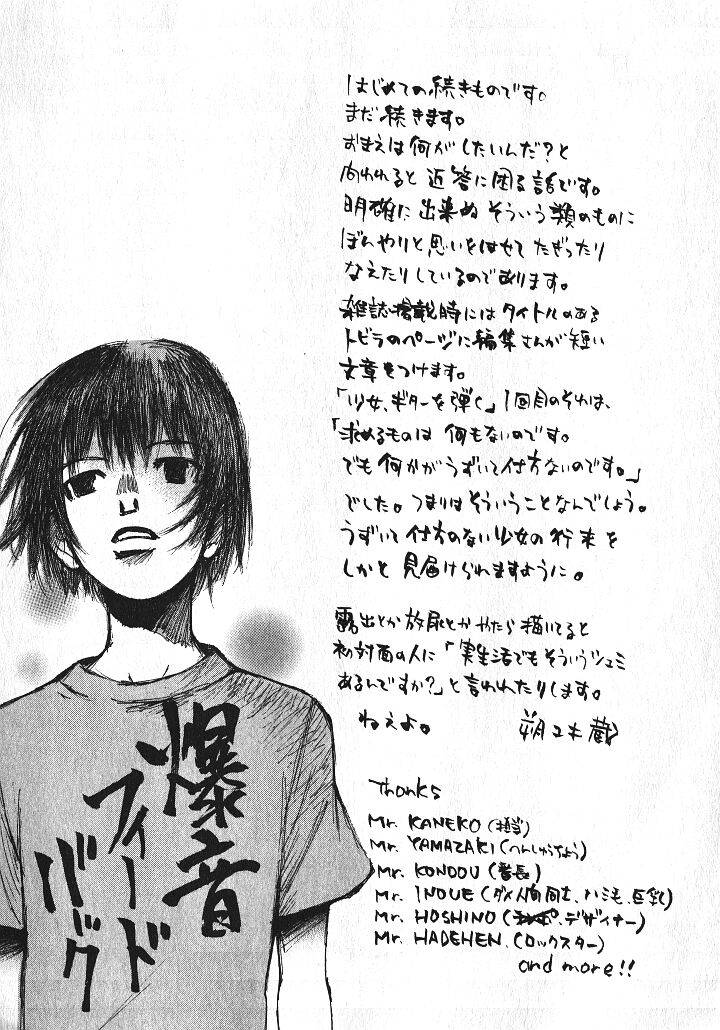 はじめての続きものです。
まだ続きます。
おまえは何がしたいんだ?と
向われると近答に困る話です。
明確に出来ぬそういう類のものに
ぼんやりと思いをはせてたぎったり
なえたりしているのであります。
雑誌掲載時にはタイトルのある
トビラのページに編集さんが短い
文章をつけます。
「少女、ギターを弾く」1回目のそれは、
「求めるものは何もないのです。
でも何かがうずいて仕方ないのです。」
でした。つまりはそういうことなんでしょう。
うずいて仕方のない少女の行末を
しかと見届けられますように。
露出とか放尿とかやたら描いてると
初対面の人に「実生活でもそういうシュミ
あるんですか?」と言われたりします。
ねえよ。 朔ユキ蔵
Thanks
Mr. KANEKO (担当)
Mr. YAMAZAKI (へんしゅうちょう)
Mr. KONDOU (番長)
Mr. INOUE (ダメ人間同士、ハミ毛、巨乳)
Mr. HOSHINO (デザイナー)
Mr. HADEHEN. (ロックスター)
and more!!
爆音
フィード
バック